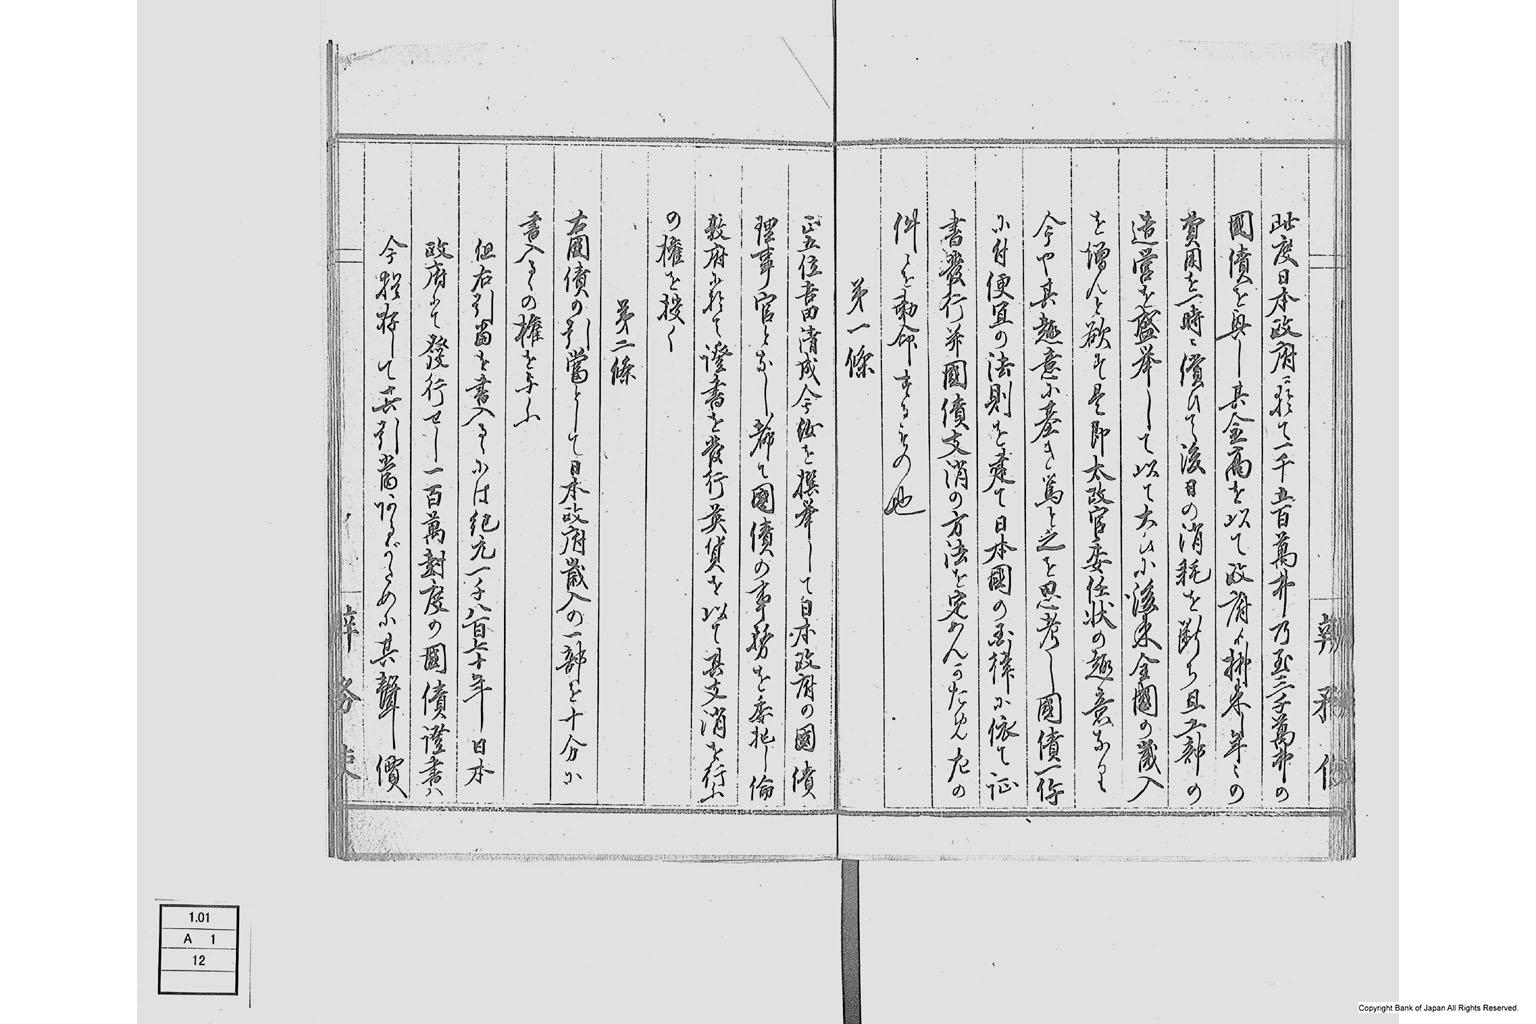 此度日本政府ニ於て一千五百萬弗乃至三千萬弗の
國債を興し其金高を以て政府より拂來し年々の
費用を一時ニ償ひて後日の消耗を断ち且工部の
造営を盛挙して以て大ひに後来全國の歳入
を増んと欲す是即太政官委任状の趣意なり
今や其趣意に基き篤と之を思考し國債一件
に付便宜の法則を建て日本國の法律に依て証
書發行并國債支消の方法を定めんかため左の
件々を勅命するもの也
第一條
正五位吉田清成今汝を撰挙して日本政府の國債
理事官となし都て國債の事務を委托し倫
敦府に於て證書を發行英貨を以て其支消を行ふ
の權を授く
第二條
右國債の引當として日本政府歳入の一部を十分に
書入るの權を与ふ
但右引當を書入るには紀元一千八百七十年日本
政府にて發行せし一百萬封度の國債證書ハ
今猶存して其引當あるがために其聲價
辨務使
辨務使
1.01
A 1
12
Copyright Bank of Japan All Rights Reserved.